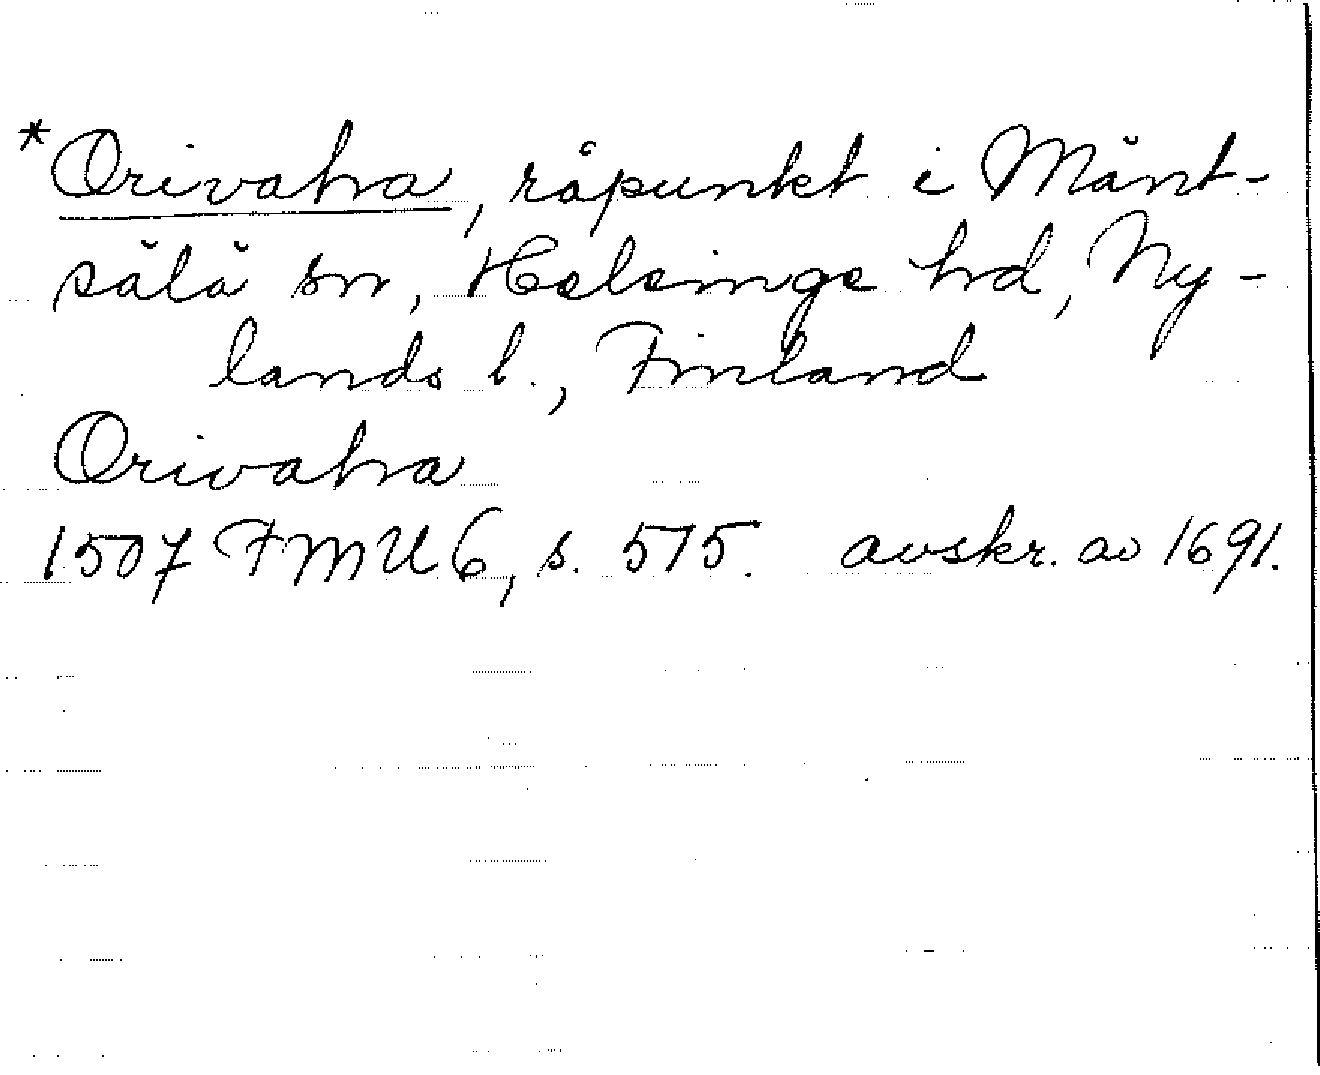 *Orivaha, råpunkt i Mänt-
sälä sn, Helsinge hd, Ny-
lands l., Finland
Orivaha
1507 FMU 6, s. 575. avskr. av 1691.